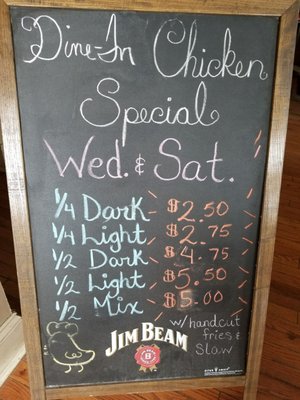 Dine-In Chicken
Special
Wed. & Sat.
1/4 Dark - $2.50
1/4 Light - $2.75
1/2 Dark - $4.75
1/2 Light - $5.50
1/2 Mix - $5.00
JIM BEAM
w/ handcut
fries &
slaw